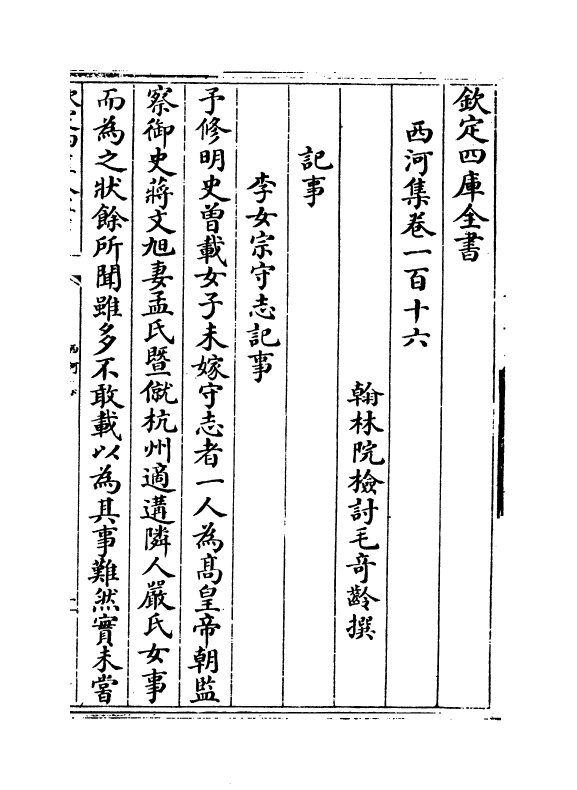 欽定四庫全書
西河集卷一百十六
翰林院檢討毛奇齡撰
記事
李女宗守志記事
予修明史曾載女子未嫁守志者一人為髙皇帝朝監
察御史蔣文旭妻孟氏暨僦杭州適遘隣人嚴氏女事
而為之狀餘所聞雖多不敢載以為其事難然實未當
西河